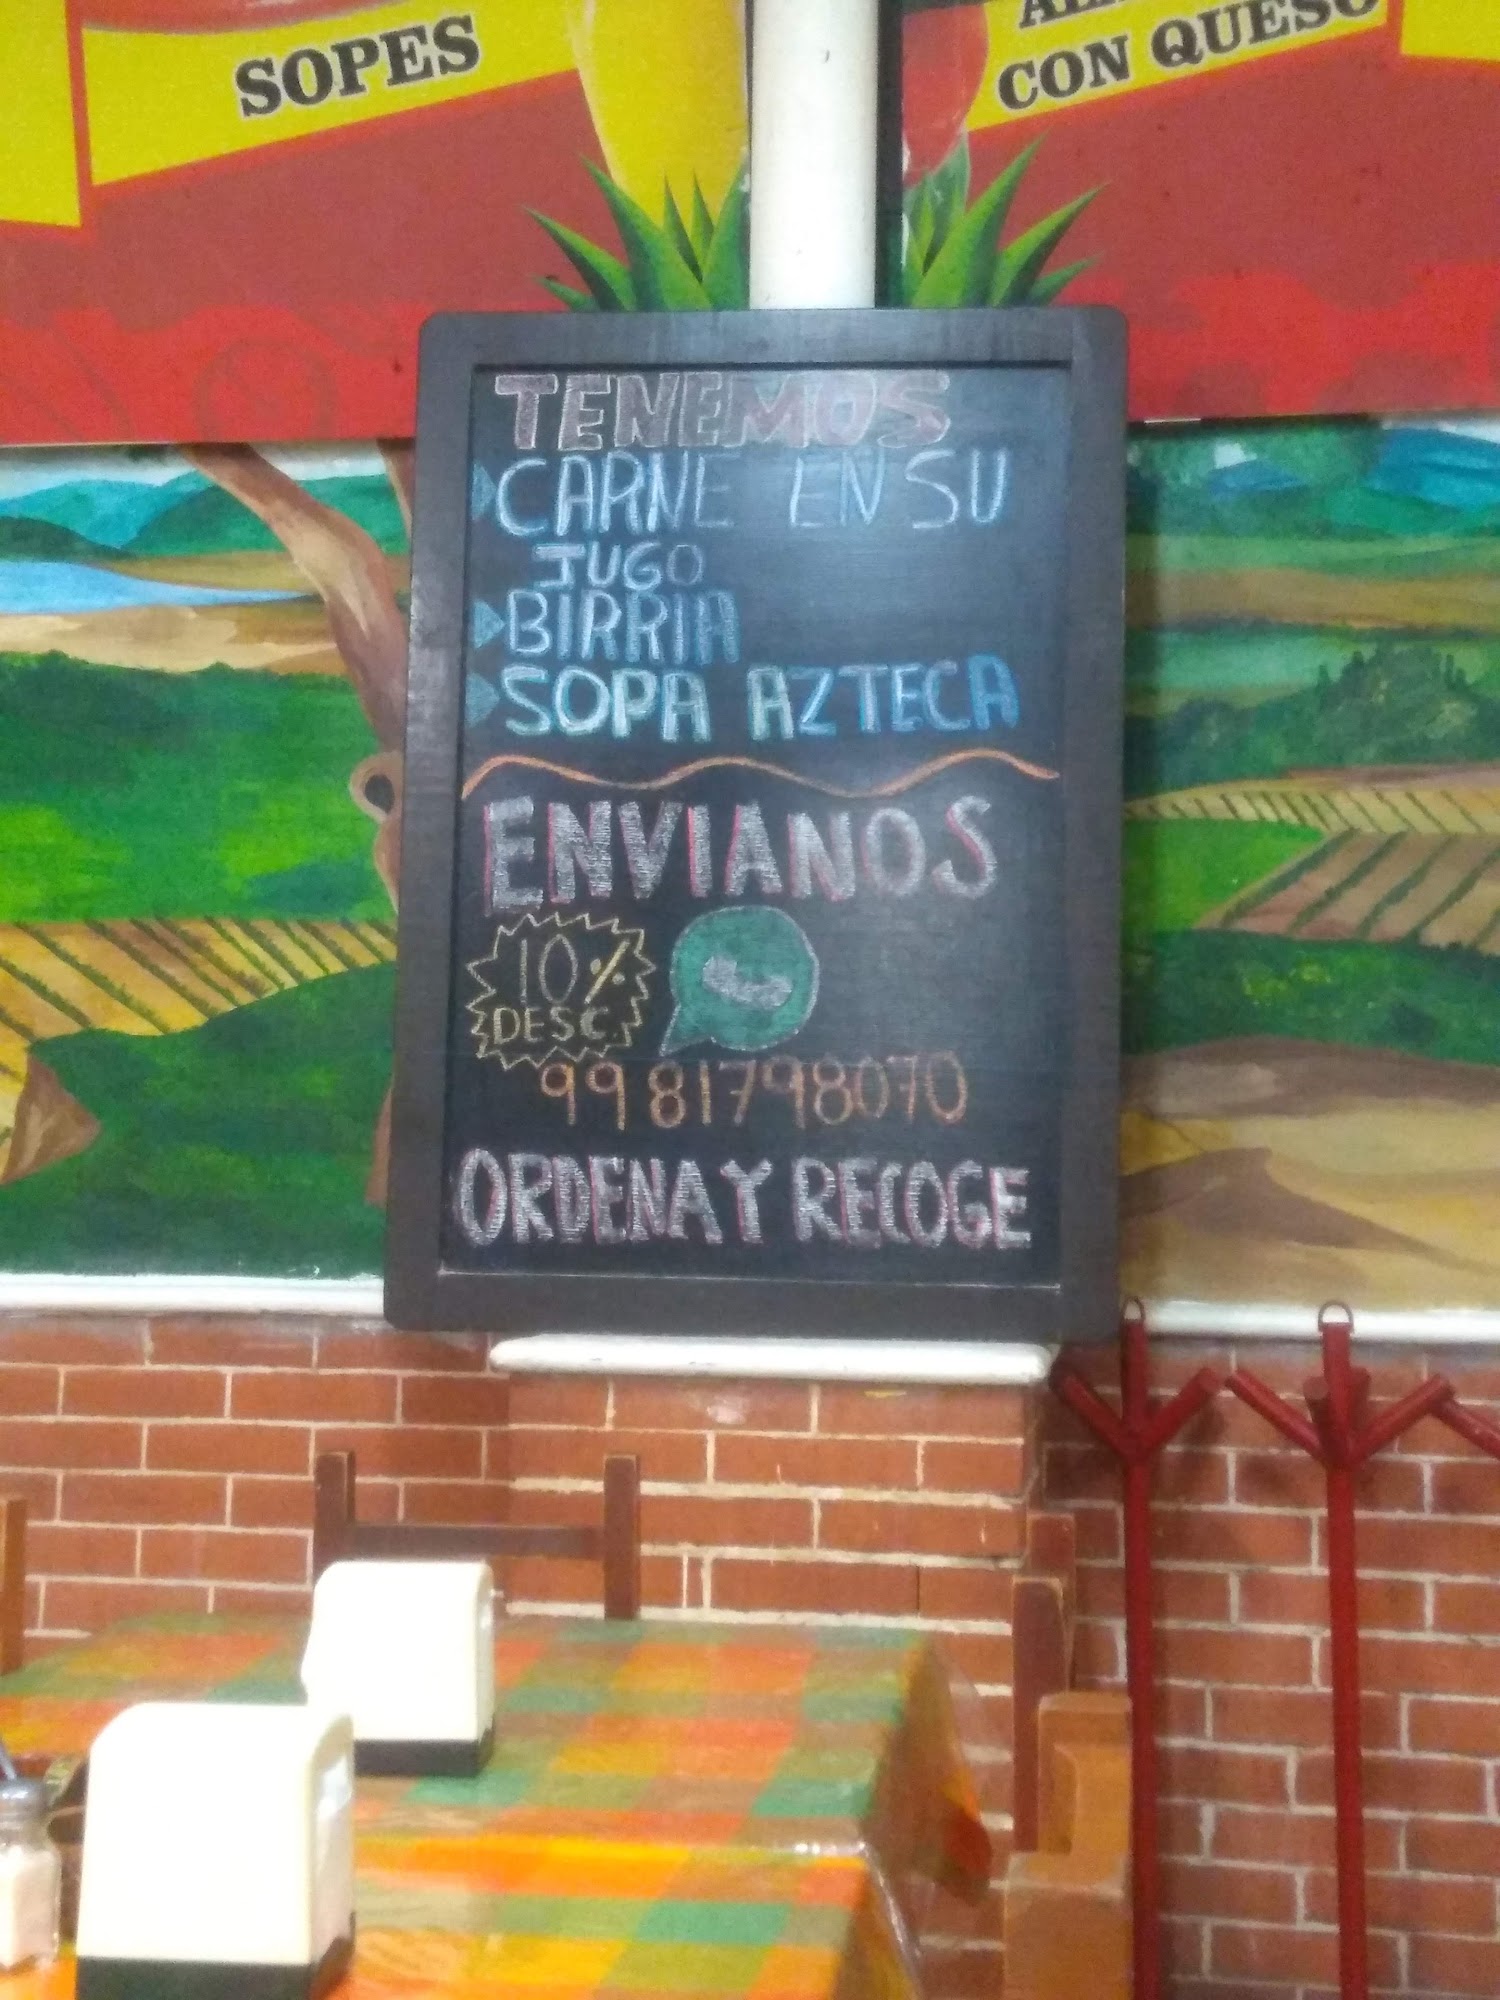 SOPES
CON QUESO
TENEMOS
CARNE EN SU
JUGO
BIRRIA
SOPA AZTECA
ENVIANOS
10%
DESC.
9981798070
ORDENA Y RECOGE